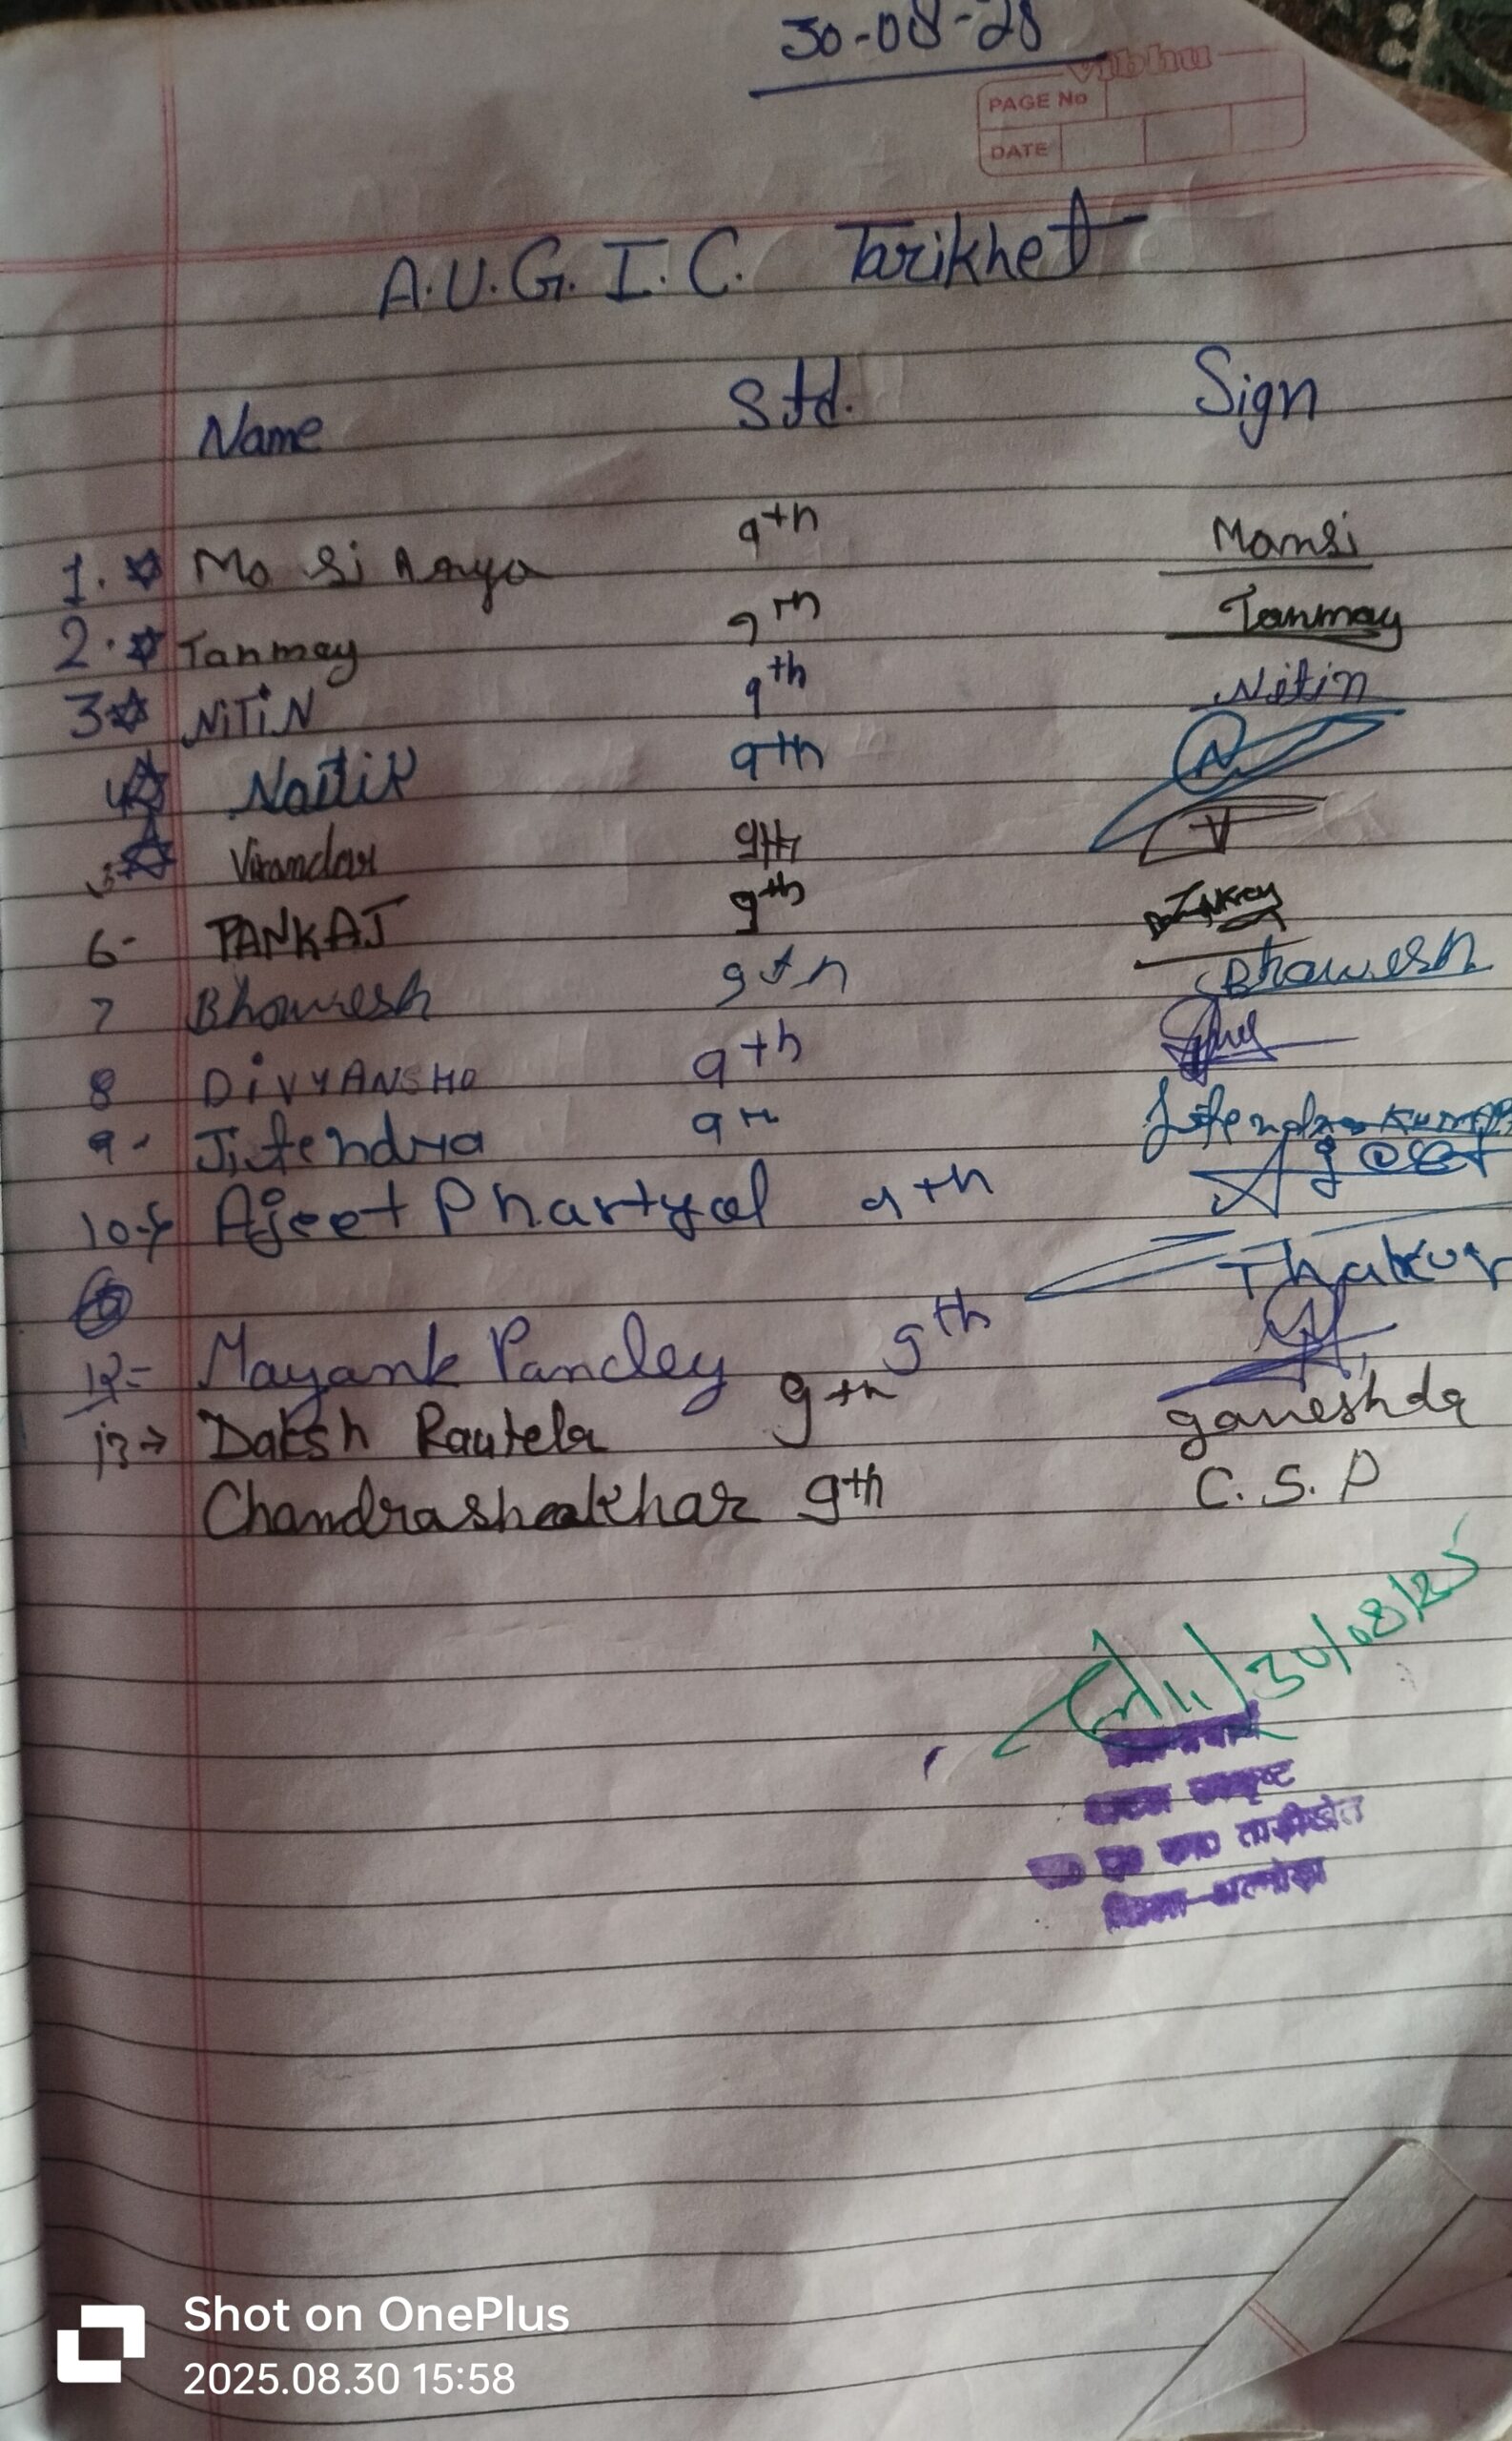 30-08-25
vibhu
PAGE No
DATE
A.U.G.I.C. Tarikhet
Name Std. Sign
1. Mansi Arya 9th Mansi
2. Tanmay 9th Tanmay
3 NiTiN 9th Nitin
4 Naitik 9th N
5 Virandar 9th V
6- PANKAJ 9th
7 Bhawesh 9th Bhawesh
8 DiVYANSHU 9th
9- Jitendra 9th Jitendra Kumar
10 Ajeet Phartyal 9th Ajeet
Thakur
12= Mayank Pandey 9th
13→ Daksh Rautela 9th ganeshda
Chandrashekhar 9th C.S.P
30/08/25
उत्कृष्ट
ताड़ीखेत
जिला-अल्मोड़ा
Shot on OnePlus
2025.08.30 15:58